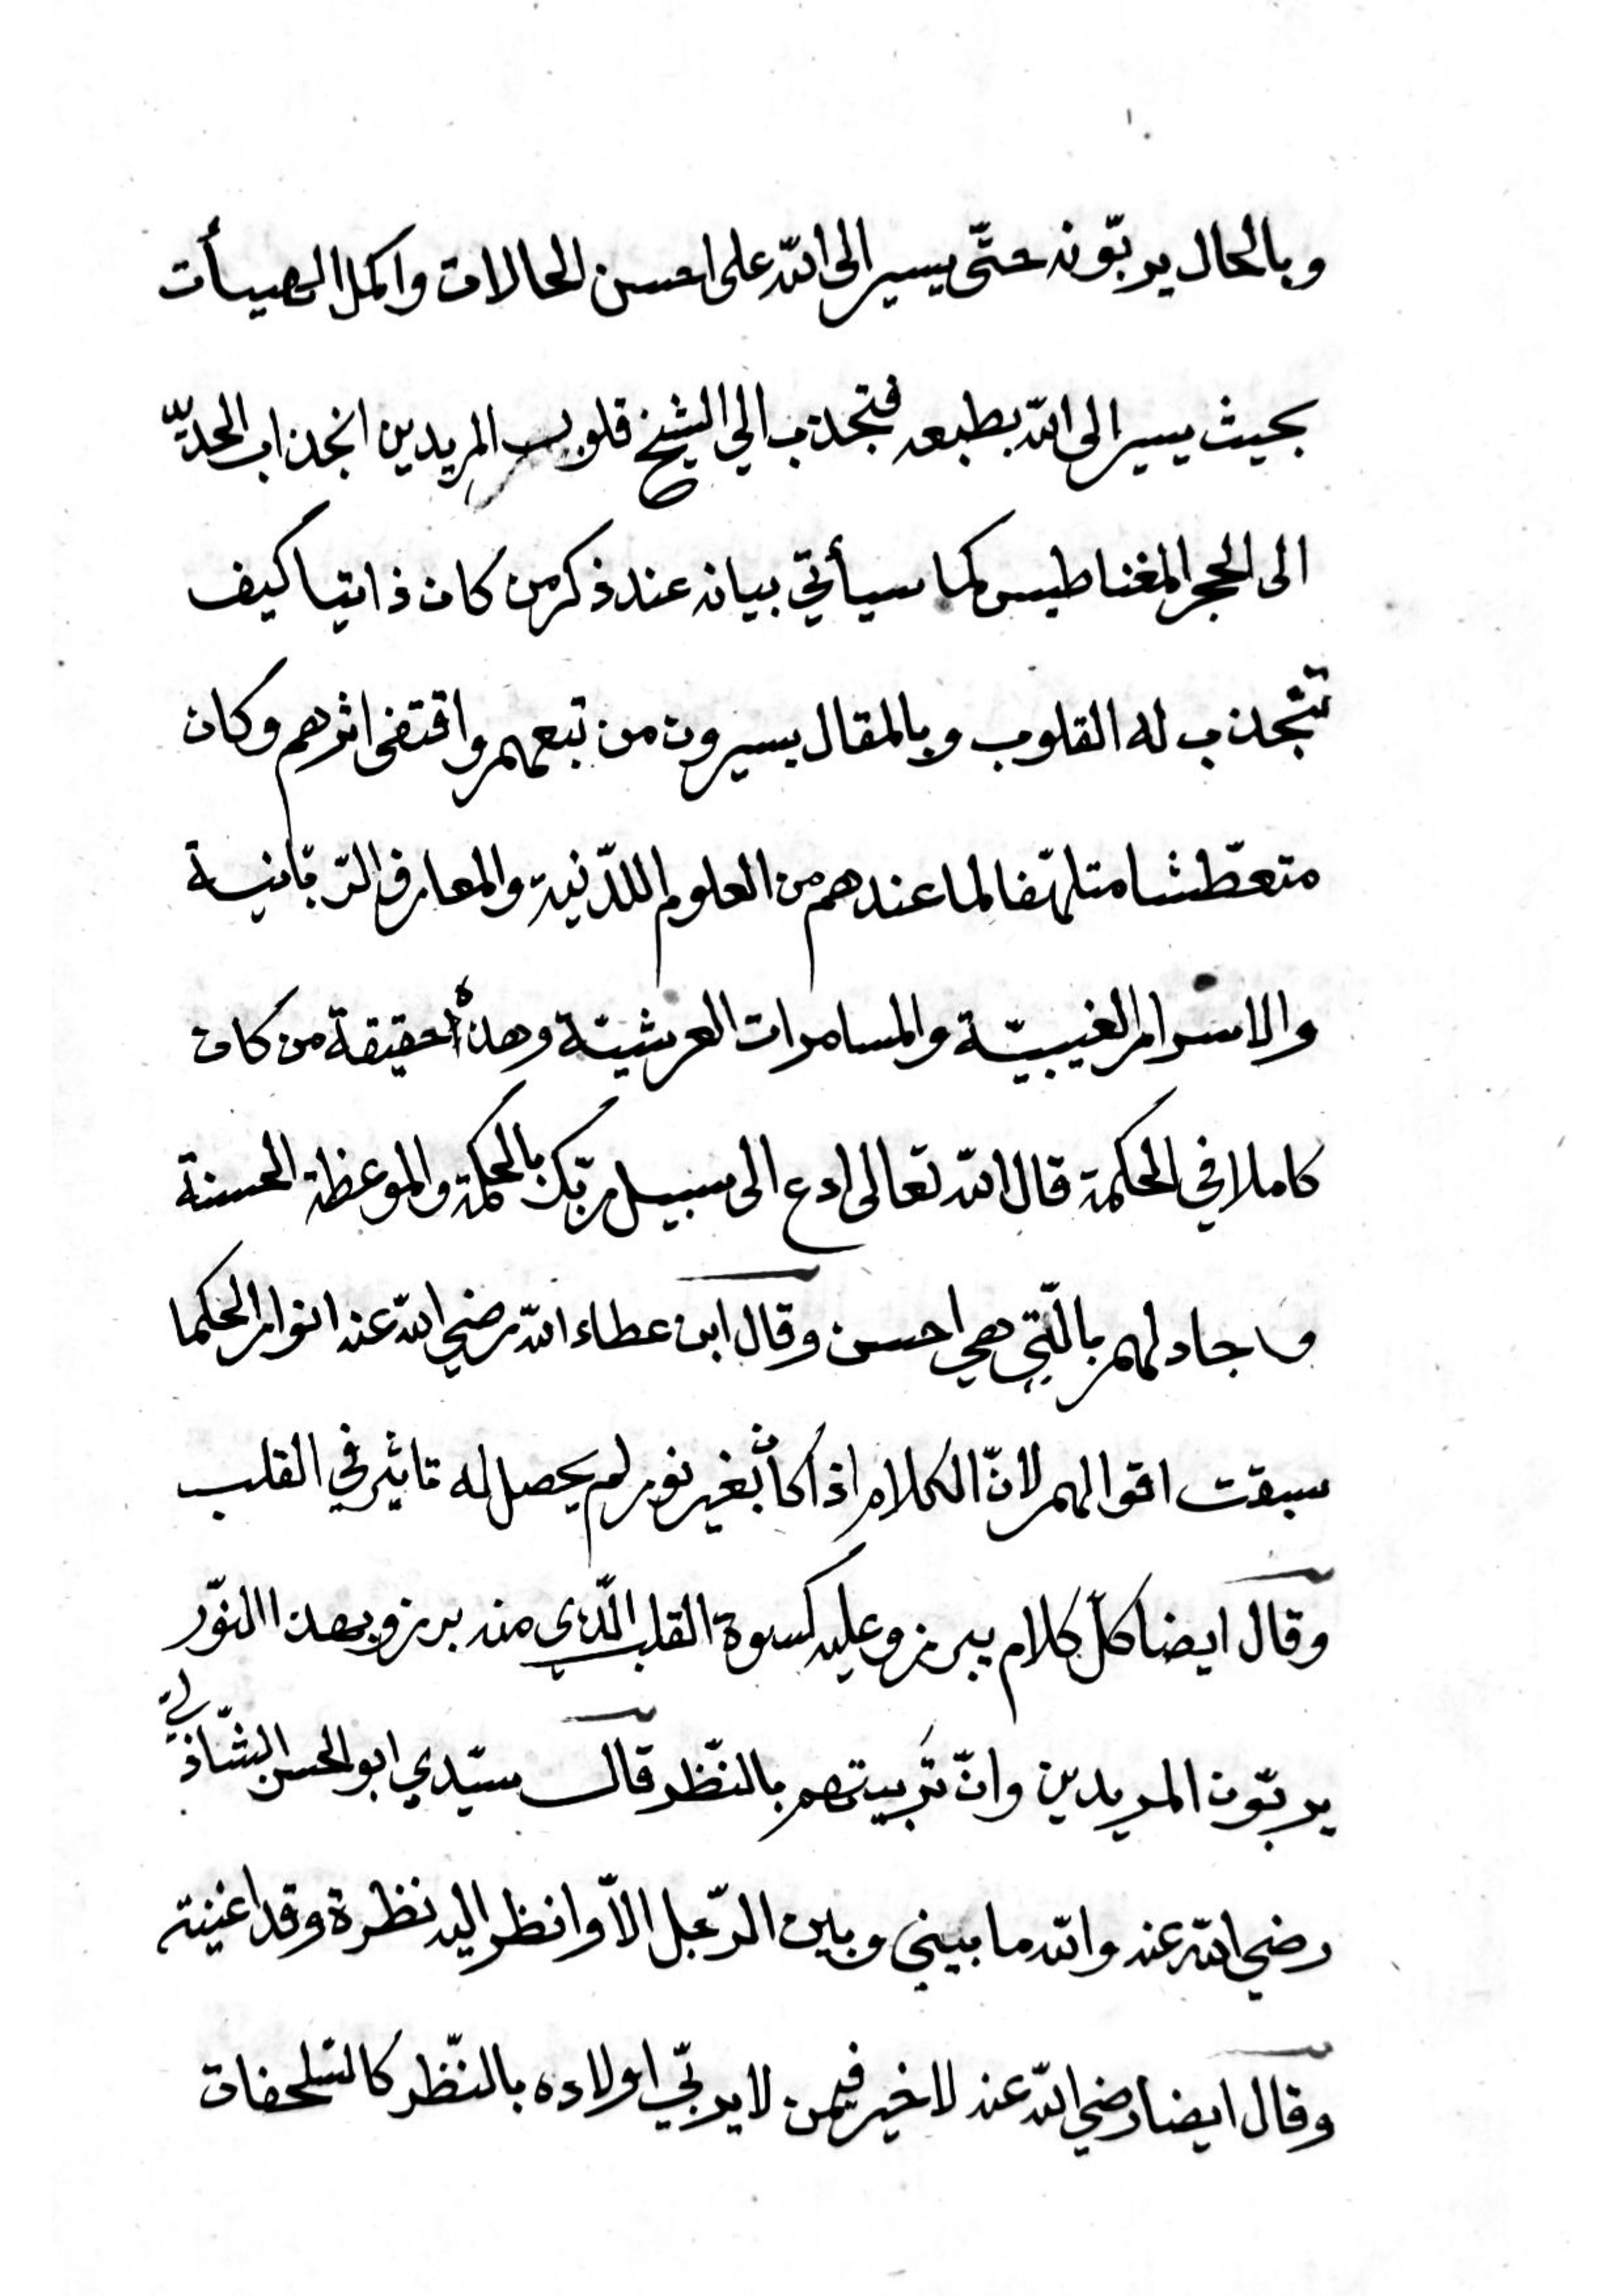 وبالحال يربّونه حتّى يسير الى الله على احسن الحالات واكمل الهيأت
بحيث يسير الى الله بطبعه فتجذب الي الشيخ قلوب المريدين انجذاب الحديد
الى الحجر المغناطيس كما سيأتي بيانه عند ذكر من كان ذاتيا كيف
تنجذب له القلوب وبالمقال يسيرون من تبعهم واقتفى اثرهم وكان
متعطّشا متلهّفا لما عندهم من العلوم اللدّنية والمعارف الرّبّانية
والاسرار الغيبيّة والمسامرات العرشيّة وهذه حقيقة من كان
كاملا في الحكمة قال الله تعالى ادع الى سبيل ربّك بالحكمة والموعظة الحسنة
وجادلهم بالّتي هي احسن وقال ابن عطاء الله رضي الله عنه انوار الحكما
سبقت اقوالهم لانّ الكلام اذا كان بغير نور لم يحصل له تاثير في القلب
وقال ايضا كلّ كلام يبرز وعليه كسوة القلب الّذي منه برز وبهذا النّور
يربّون المريدين وانّ تربيتهم بالنّظر قال سيّدي ابو الحسن الشّاذلي
رضي الله عنه والله ما بيني وبين الرّجل الاّ وانظر اليه نظرة وقد اغنيته
وقال ايضا رضي الله عنه لا خير فيمن لا يربّي اولاده بالنّظر كالسّلحفات